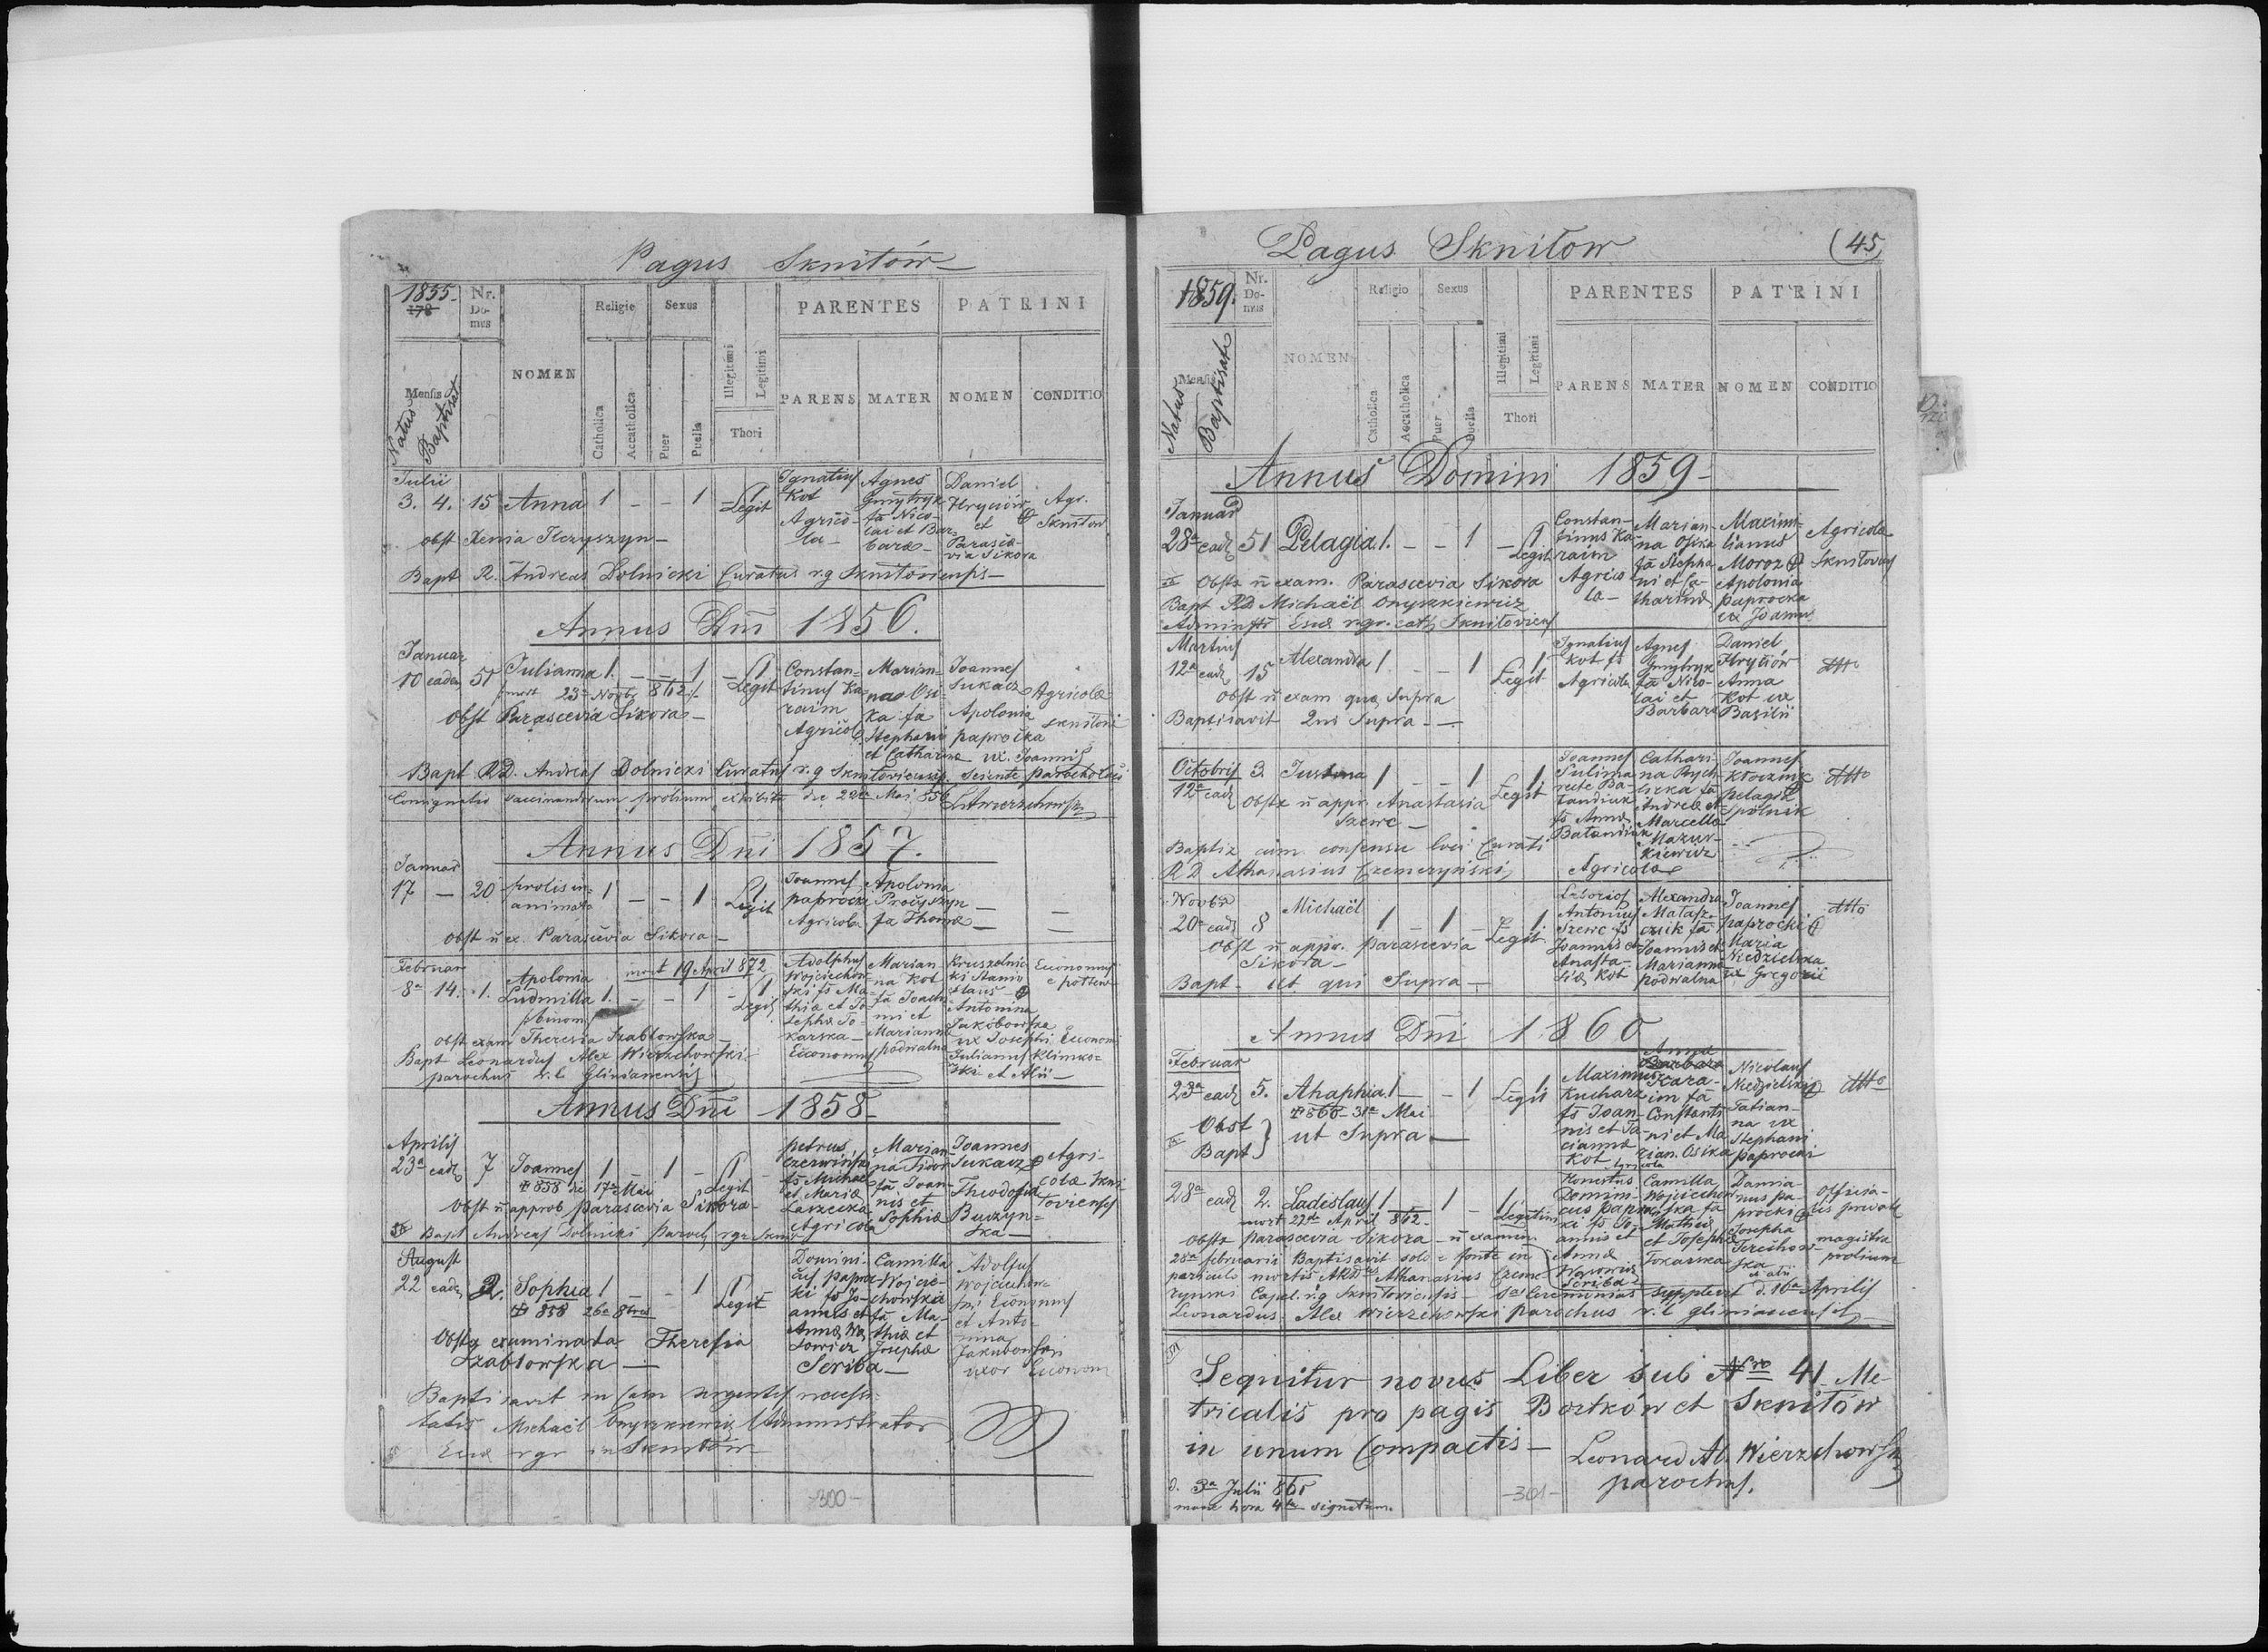 Pagus Sknitów
1855.
178
Nr. Domus
NOMEN
Religio
Sexus
PARENTES
PATRINI
Mensis
Natus
Baptisat
Catholica
Accatholica
Puer
Puella
Illegitimi
Legitimi
Thori
PARENS
MATER
NOMEN
CONDITIO
Julii
3. 4. 15 Anna 1 - - 1 - 1 Legit
Ignatius Kot Agricola
Agnes Gmytryk fa Nicolai et Barbarae
Daniel Hryciów et Parascevia Sikora
Agr. Sknitow
obst Xenia Ilczyszyn
Bapt R. Andreas Dolnicki Curatus r.g Sknitoviensis
Annus Dni 1856.
Januar
10 eadem 51 Julianna 1. - - 1 - 1 Legit
mort 23a Novbr 862
Constantinus Karaim Agricola
Marianna Osika fa Stephani et Catharinae
Joannes Lukacz Apolonia paprocka ux. Joannis
Agricolae Sknitovi
Obst Parascevia Sikora
Bapt RD. Andreas Dolnicki Curatus r.g Sknitoviensis. Sciente parocho loci
Consignatio vaccinandorum prolium exhibita die 22a Maj 856
Annus Dni 1857.
Januar
17 - 20 prolis inanimata 1 - - 1 1 Legit
Joannes paprocki Agricola
Apolonia Procyszyn fa Thomae
obst n ex. Parascevia Sikora
Februar
8a 14. 1. Apolonia Ludmilla binom 1. - - 1 - 1 Legit
mort 19 April 872
Adolphus Wojciechowski fs Mathiae et Josephae Tokarska Economus
Marianna Kot fa Joachimi et Marianna podwalna
Kruszelnicki Stanislaus Antonina Jakobowska ux Josephi Economi
Julianus Klimkoski et Alii
Economus
obst exam Theresia Szabtowska
Bapt Leonardus Alex Wierzchowski
parochus r.l Glinianensis
Annus Dni 1858
Aprilis
23a ead 7 Joannes 1 - 1 - 1 Legit
858 die 17a Mai
petrus Czerwinski fs Michael et Mariae Laszecka Agricola
Marianna Sidor fa Joannis et Sophiae
Joannes Lukacz Theodosia Buczynska
Agricolae Sknitoviensis
obst n approb parascevia Sikora
Bapt Andreas Dolnicki Paroch rgr Sknit
August
22 ead 2. Sophia 1 - - 1 1 Legit
858 26a 8bris
Dominicus paprocki fs Joannis et Annae Wasowicz Scriba
Camilla Wojciechowska fa Mathiae et Josephae
Adolfus Wojciechowski Economus et Antonina Jakubowska uxor Econom
Obstx examinata Theresia
Szabtowska
Baptisavit in casu urgentis necessitatis Michaël Onyszkiewicz Administrator
Ecclae rgr in Sknitów
-300-
Pagus Sknitow
(45)
1859.
Nr. Domus
NOMEN
Religio
Sexus
PARENTES
PATRINI
Mensis
Natus
Baptisatae
Catholica
Accatholica
Puer
Puella
Illegitimi
Legitimi
Thori
PARENS
MATER
NOMEN
CONDITIO
Annus Domini 1859
Januar
28a ead 51 Pelagia 1. - - 1 - 1 Legit
Constantinus Karaim Agricola
Marianna Osika fa Stephani et Catharinae
Maximilianus Moroz Apolonia paprocka ux Joannis
Agricolae Sknitoviens
Obstx n exam. Parascevia Sikora
Bapt RD Michaël Onyszkiewicz
Administr Ecclae rgr. cath Sknitoviens
Martius
12a ead 15 Alexandra 1 - - 1 1 Legit
Ignatius Kot fs Agricola
Agnes Gmytryk fa Nicolai et Barbara
Daniel Hryciów Anna Kot ux Basilii
dtto
obst n exam quae Supra
Baptisavit qui Supra
Octobris
12a ead 3. Justina 1 - - 1 1 Legit
Joannes Sulima recte Batandiuk fs Anna Batandiuk
Catharina Rychliczka fa Andreae et Marcella Mazurkiewicz
Agricolae
Joannes pelagia Spolnik
dtto
obstx n appr. Anastasia Szewc
Baptiz cum consensu loci Curati
RD Athanasius Czemeryński
Novbr
20a ead 8 Michaël 1 - 1 - 1 Legit
Antonius Szewc fs Joannis et Anastasiae Kot
Alexandra fa Joannis et Marianna podwalna
Joannes paprocki Maria Niedzielska ux Gregorii
dtto
obst n appr. parascevia Sikora
Bapt ut qui Supra
Annus Dni 1860
Februar
23a ead 5. Ahaphia 1 - - 1 1 Legit
868 31a Mai
Maximus Kucharz fs Joannis et Tacianna Kot Agricola
Anna Barbara Karaim fa Constantini et Marian. Osika
Nicolaus Niedzielski Tatianna ux Stephani paprocki
dtto
Obst
Bapt } ut Supra
28a ead 2. Ladislaus 1 - 1 - 1 Legitim
mort 22a April 862
Honestus Dominicus paprocki fs Joannis et Annae Wasowicz Scriba
Camilla Wojciechowska fa Mathiei et Josephae Tokarska
Damianus paprocki Josepha Tereskowska et alii
officialis privatus magistra prolium
obstx parascevia Sikora n examin.
28a februarii Baptisavit solo e fonte in
periculo mortis Athanasius Czemeryński Capel. r.g Sknitoviensis - Sas Ceremonias supplevit d. 16a Aprilis
Leonardus Alex Wierzchowski parochus r.l glinianensis
Sequitur novus Liber sub Nro 41 Metricalis pro pagis Bortków et Sknitów
in unum Compactis
Leonard Al. Wierzchowski
parochus.
d. 3a Julii 860
hora 4ta signatum.
-301-